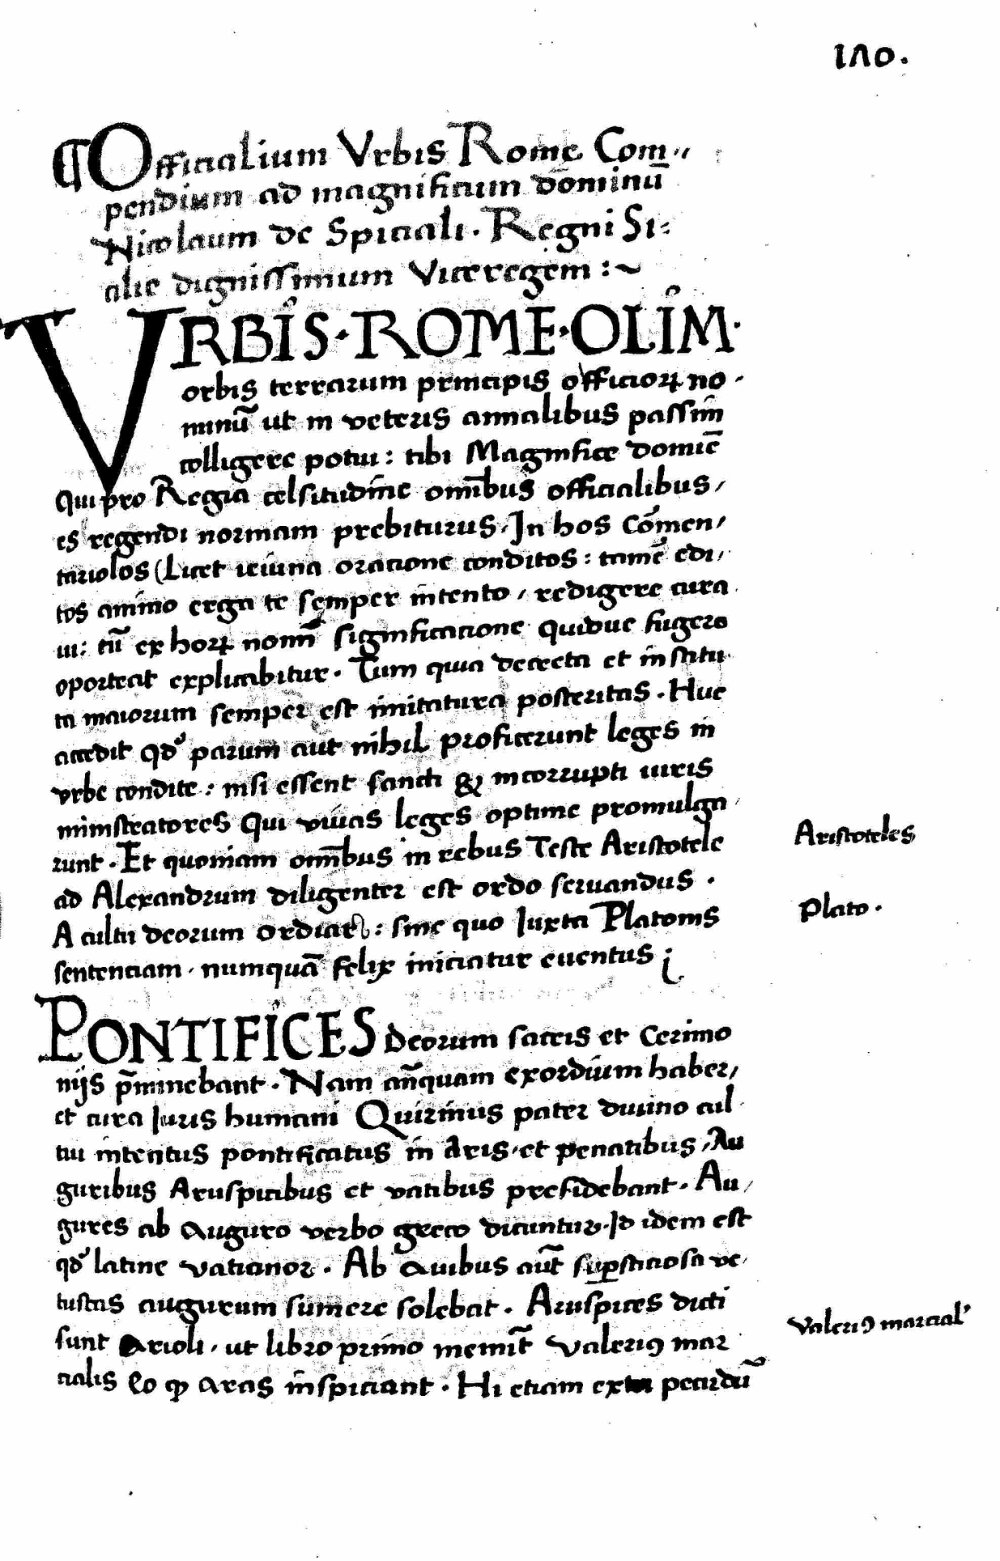 1Λ0.
¶Officialium Vrbis Rome Com〃
pendium ad magnificum dominū
Nicolaum de Spiciali. Regni Si:
cilie dignissimum Viceregem :~
VRBIS·ROME·OLIM·
orbis terrarum principis officioꝝ no·
minū ut in veteris annalibus passim
colligere potui: tibi Magnifice domiē
Qui pro Regia celsitudine omībus officialibus,
es regendi normam prebiturus. In hos Cōmen,
tariolos (Licet ieiuna oracione conditos: tamē edi,
tos animo erga te semper intento, redigere cura
ui: tū ex horꝝ nomī significacione quidue fugere
oporteat explicabitur. Tum quia decreta et institu
ta maiorum semper est imitatura posteritas. Huc
accedit qđ parum aut nihil proficerunt leges in
vrbe condite: nisi essent sancti & incorrupti iuris
ministratores Qui vivas leges optime promulga
runt. Et quoniam omībus in rebus Teste Aristotele
ad Alexandrum diligenter est ordo seruandus.
A cultu deorum ordiar: sine quo Iuxta Platonis
sentenciam. numquā felix iniciatur euentus
Aristoteles
Plato.
PONTIFICES deorum sacris et Cerimo
nijs p̄minebant. Nam anq̄uam exordium haber,
et cura Iuris humani Quirinus pater diuino cul
tui intentus pontificatus in Aris, et penatibus, Au
guribus Aruspicibus et vatibus presidebant. Au,
gures ab Auguro verbo greco dicuntur. Id idem est
qđ latine vatianor. Ab Auibus aūt sup̄sticiosa ve,
tustas augurum sumere solebat. Aruspices dicti
sunt Arioli, ut libro primo meminī t Valeriꝰ mar
cialis Eo ꝙ Aras inspiciant. Hi etiam exta pecudū
Valeriꝰ marcial'